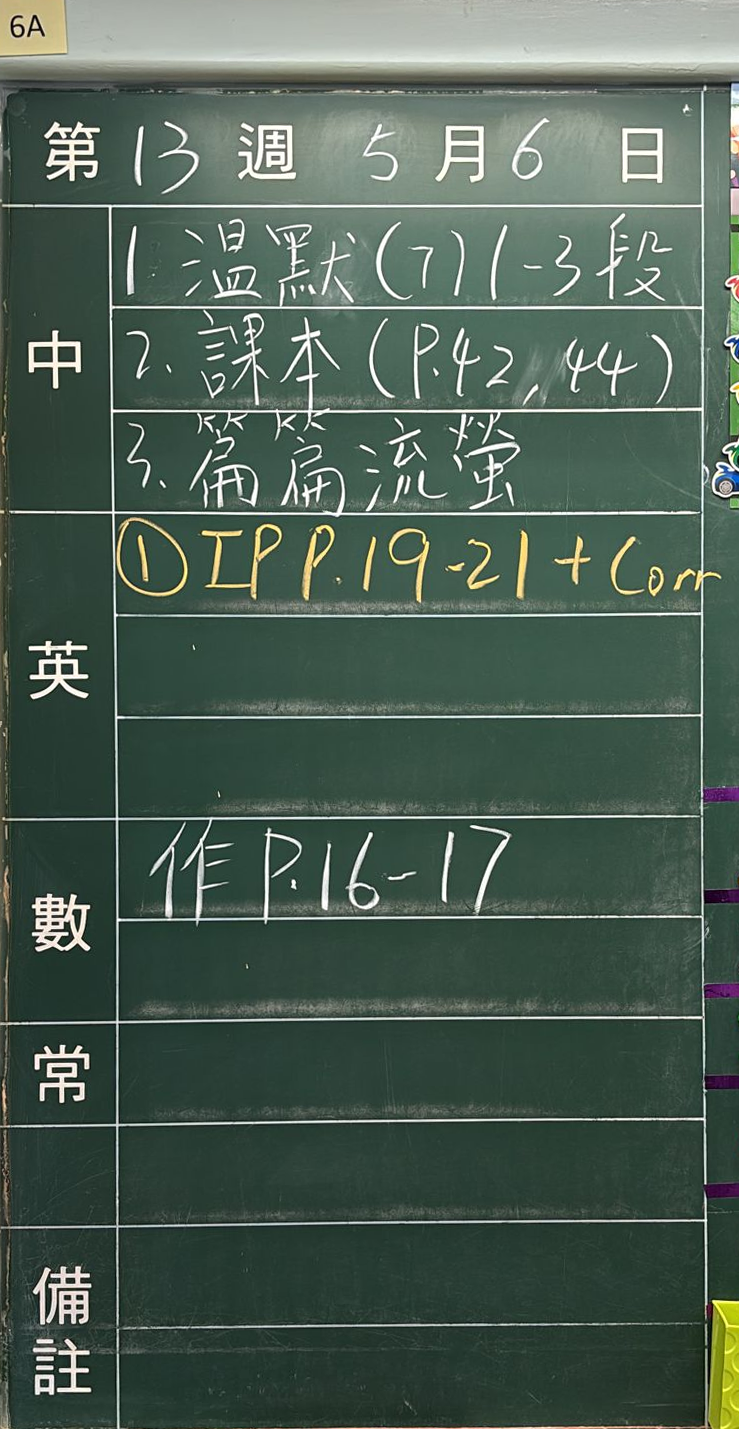 6A
第 13 週 5 月 6 日
中
1. 溫默(7) 1-3段
2. 課本 (P.42, 44)
3. 篇篇流螢
英
① IP P.19-21 + Corr
數
作 P.16-17
常
備註